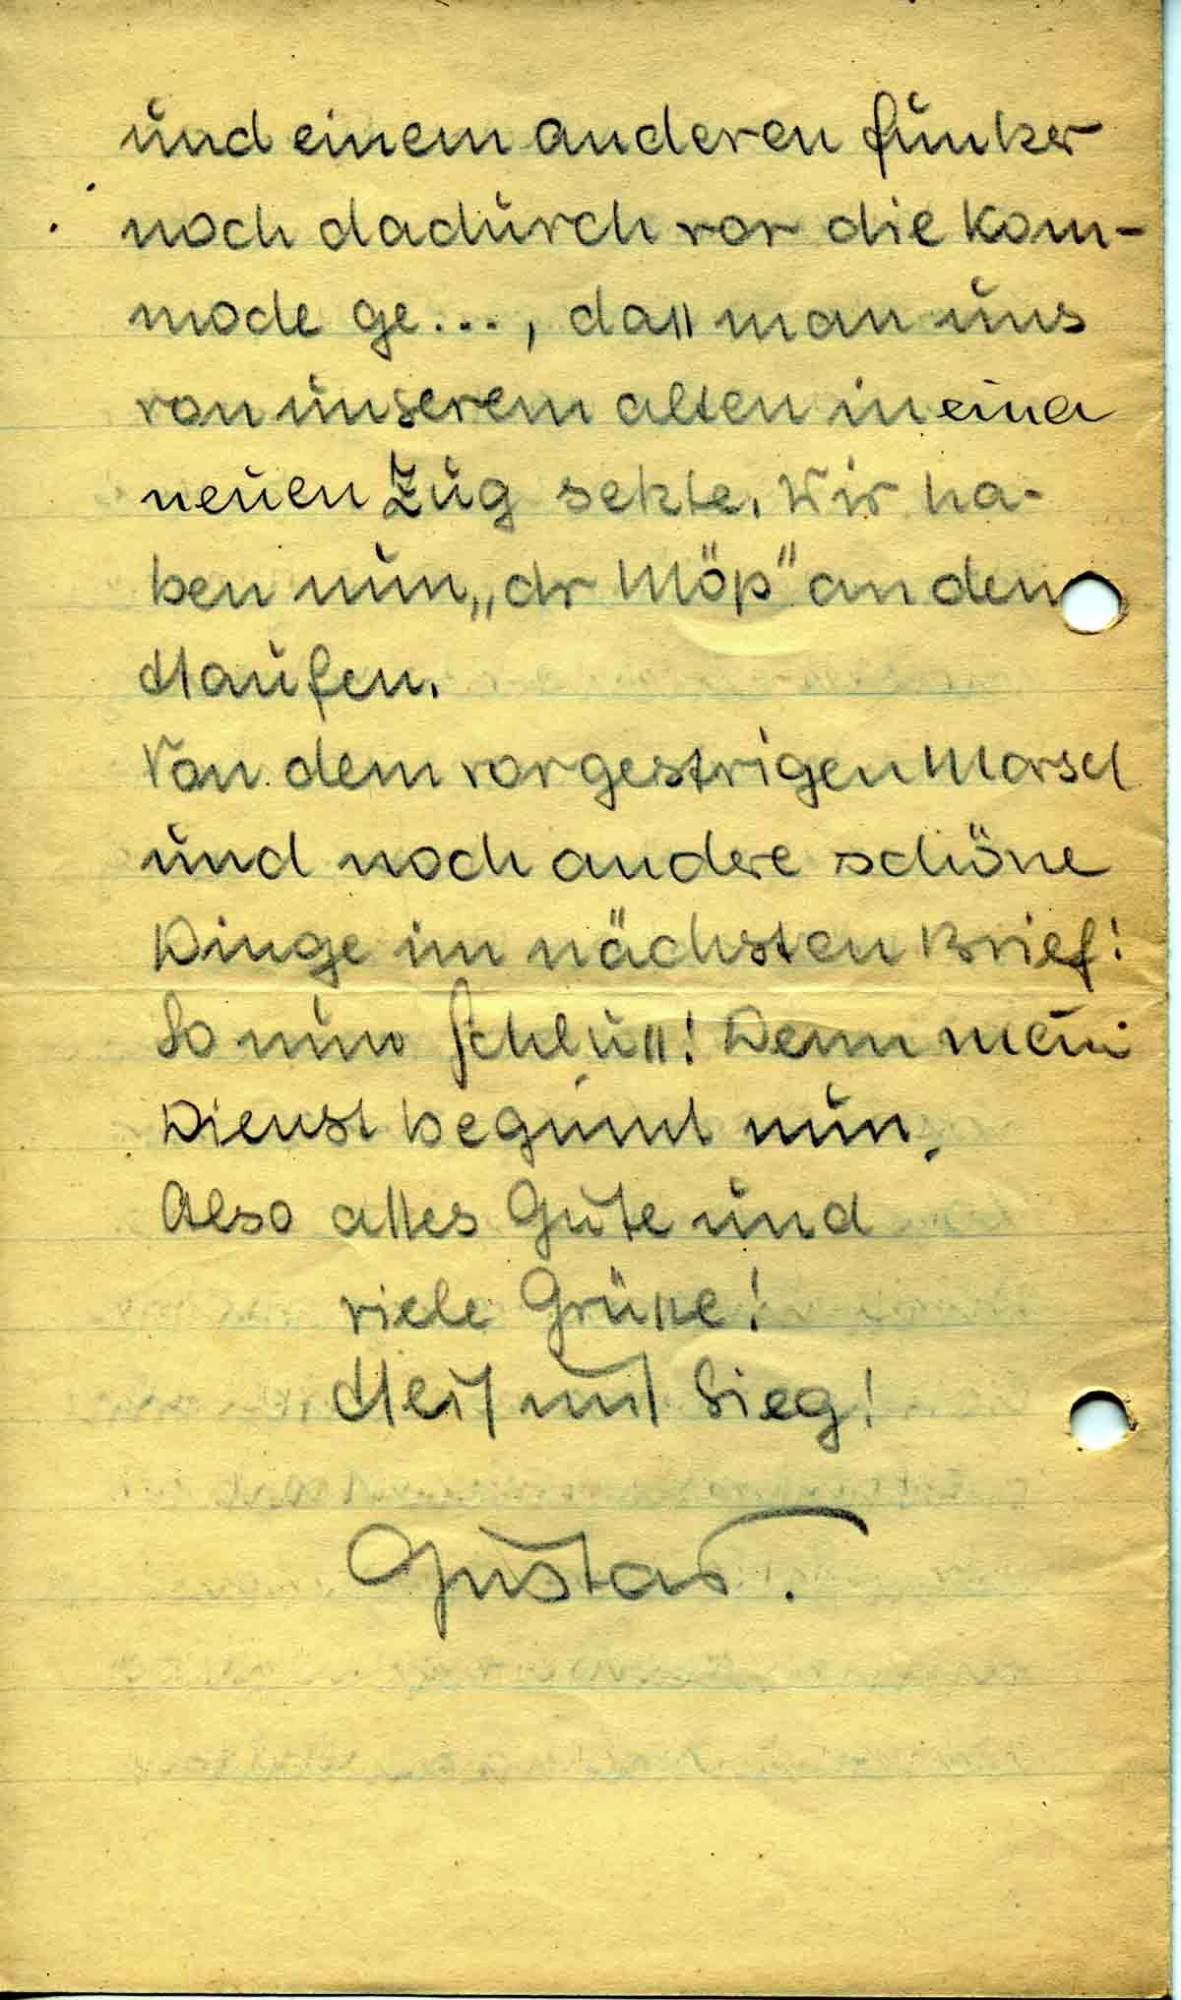 und einem anderen Funker
noch dadurch vor die Kom-
mode ge..., daß man uns
von unserem alten in einen
neuen Zug sekte. Wir ha-
ben nun „dr Möp" an den
Haufen.
Von dem vorgestrigen Marsch
und noch andere schöne
Dinge im nächsten Brief!
So nun Schluß! Denn mein
Dienst beginnt nun.
Also alles Gute und
viele Grüße!
Heil und Sieg!
Gustav.